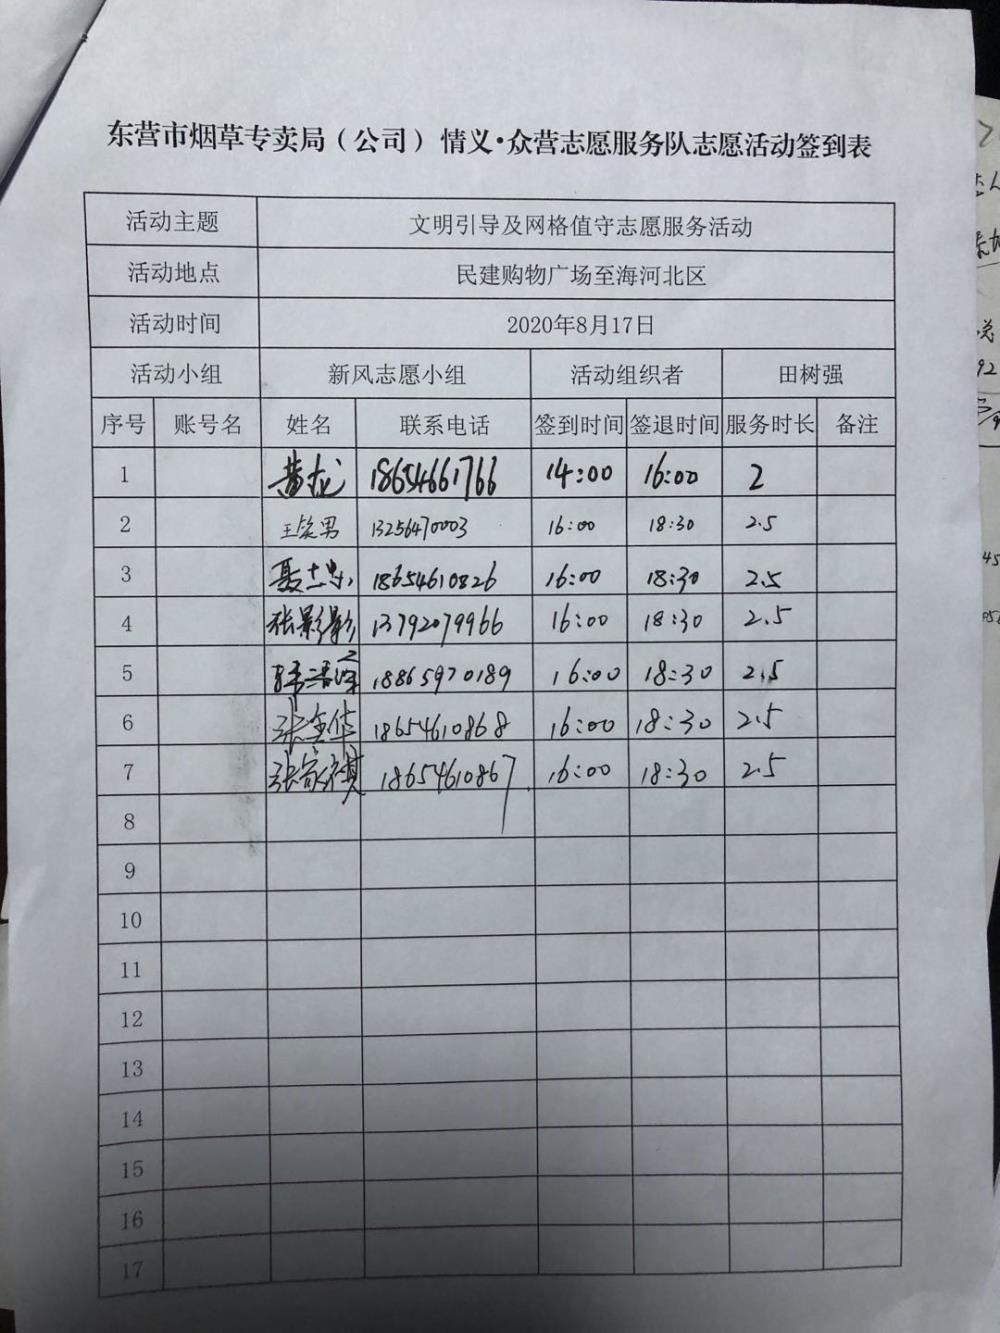 东营市烟草专卖局（公司）情义·众营志愿服务队志愿活动签到表
活动主题 文明引导及网格值守志愿服务活动
活动地点 民建购物广场至海河北区
活动时间 2020年8月17日
活动小组 新风志愿小组 活动组织者 田树强
序号 账号名 姓名 联系电话 签到时间 签退时间 服务时长 备注
1 黄龙 18654661766 14:00 16:00 2
2 王笑男 13256470003 16:00 18:30 2.5
3 18654610826 16:00 18:30 2.5
4 张影影 13792079966 16:00 18:30 2.5
5 18865970189 16:00 18:30 2.5
6 张金华 18654610868 16:00 18:30 2.5
7 张家祺 18654610867 16:00 18:30 2.5
8
9
10
11
12
13
14
15
16
17